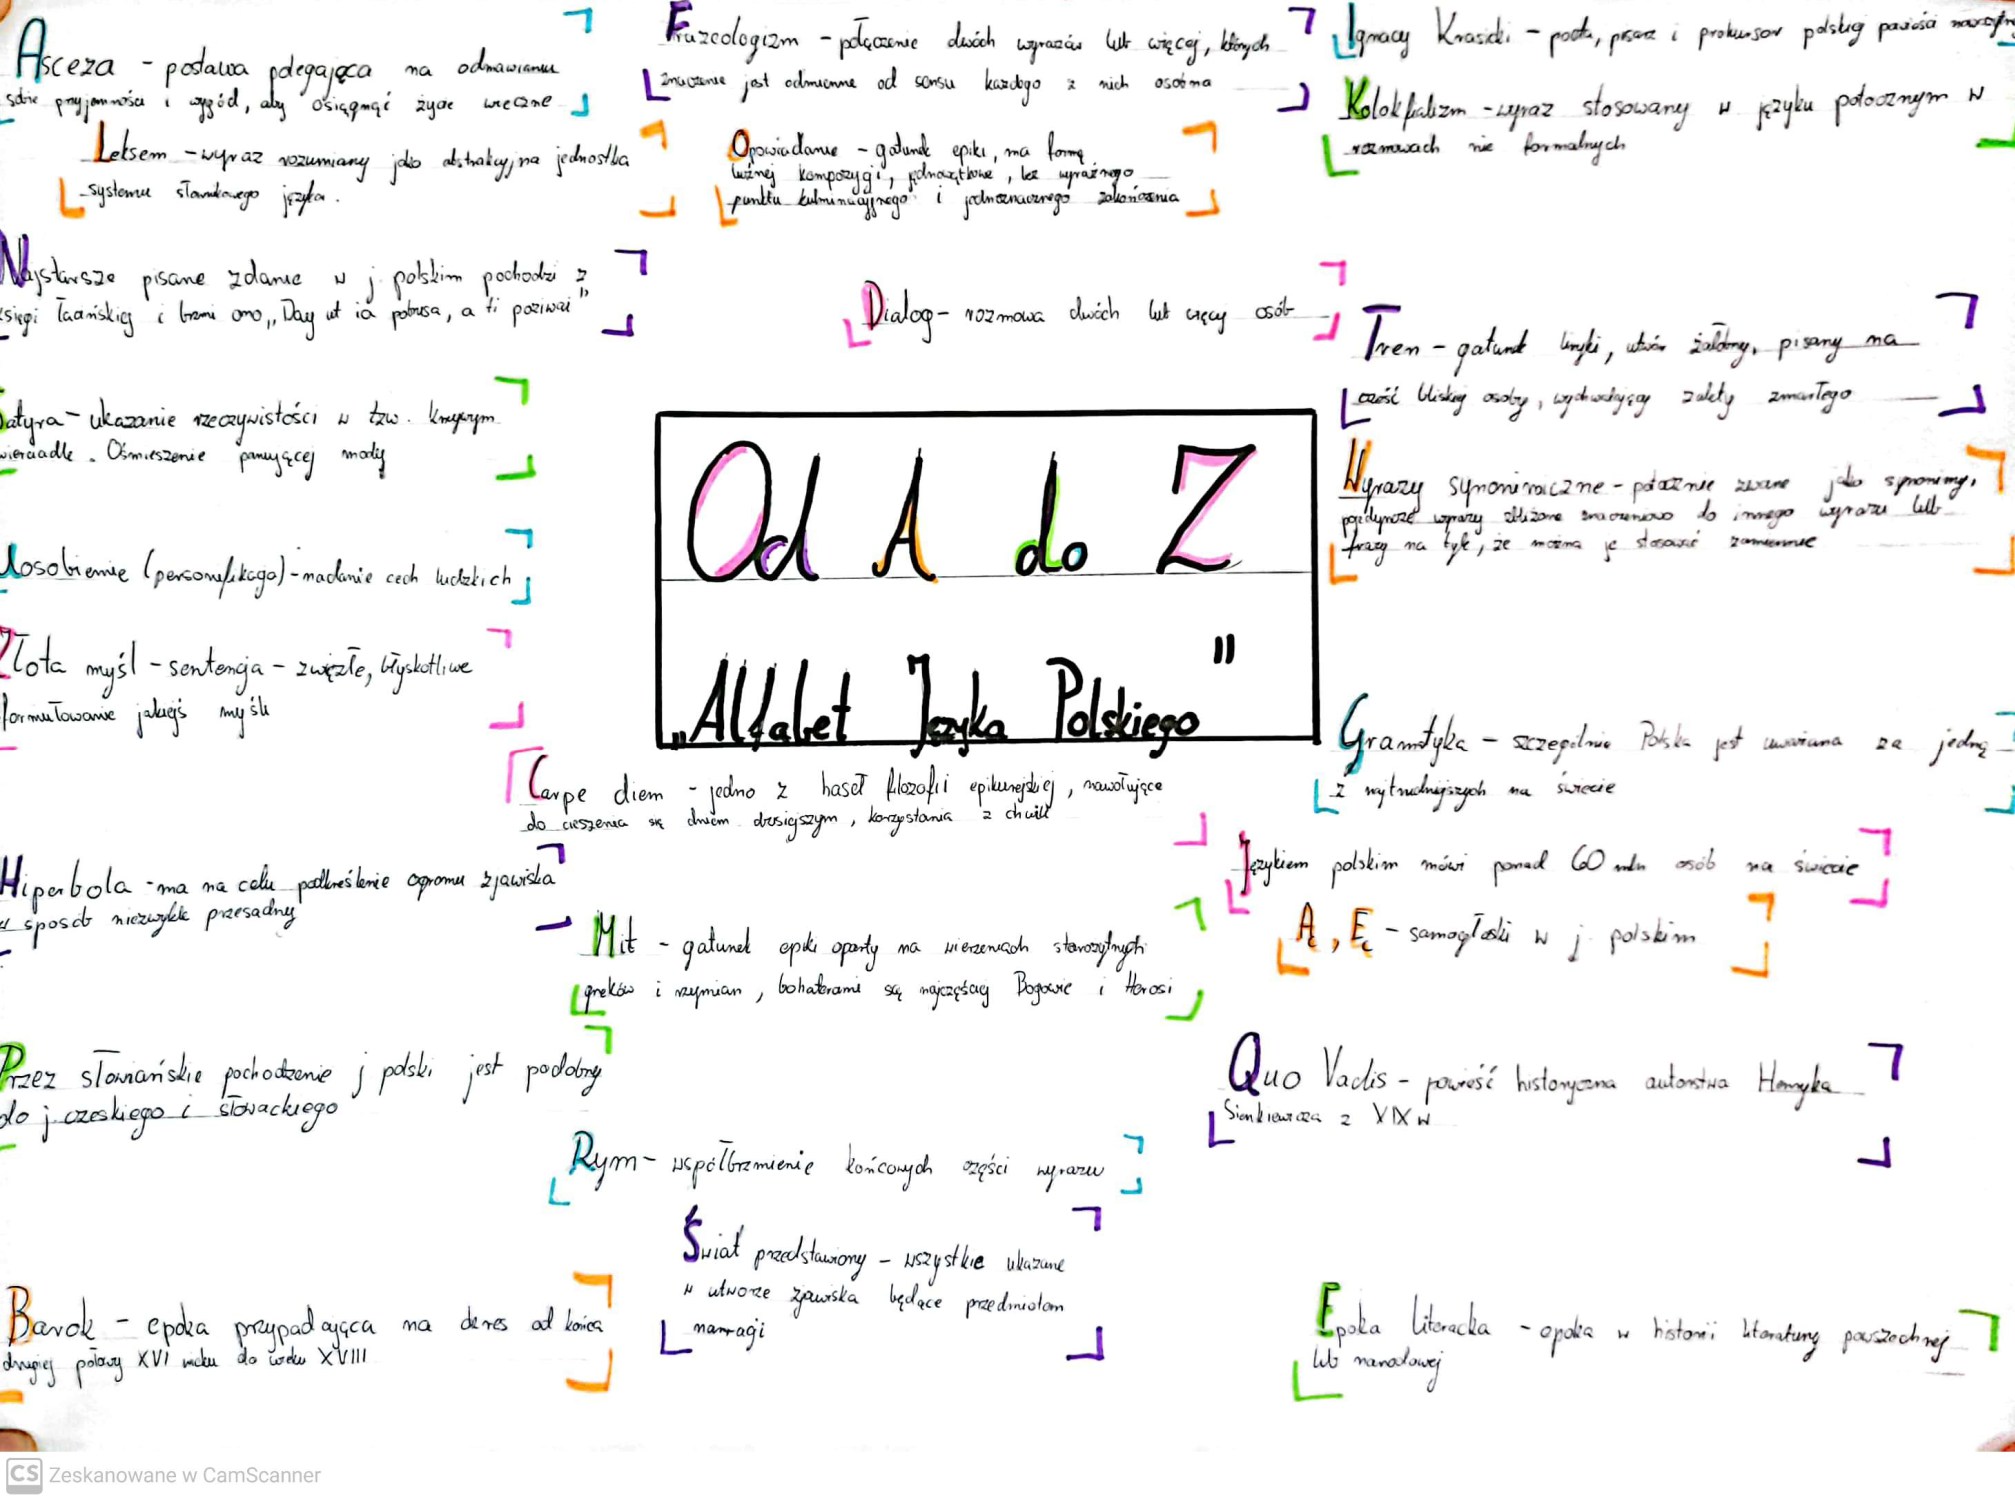 Asceza - postawa polegająca na odmawianiu
sobie przyjemności i wygód, aby osiągnąć życie wieczne
Leksem - wyraz rozumiany jako abstrakcyjna jednostka
systemu słownikowego języka.
Najstarsze pisane zdanie w j. polskim pochodzi z
księgi i brzmi ono „Day ut ia pobrusa, a ti poziwai"
Satyra - ukazanie rzeczywistości w tzw. krzywym
zwierciadle. Ośmieszenie panującej mody
Uosobienie (personifikacja) - nadanie cech ludzkich
Złota myśl - sentencja - zwięzłe, błyskotliwe
formułowanie jakiejś myśli
Hiperbola - ma na celu podkreślenie ogromu zjawiska
w sposób niezwykle przesadny
Przez słowiańskie pochodzenie j polski jest podobny
do j. czeskiego i słowackiego
Barok - epoka przypadająca na okres od końca
drugiej połowy XVI wieku do wieku XVIII
Frazeologizm - połączenie dwóch wyrazów lub więcej, których
znaczenie jest odmienne od sensu każdego z nich osobna
Opowiadanie - gatunek epiki, ma formę
luźnej kompozycji, jednowątkowe, bez wyraźnego
punktu kulminacyjnego i jednoznacznego zakończenia
Dialog - rozmowa dwóch lub więcej osób
Od A do Z
„Alfabet Języka Polskiego"
Carpe diem - jedno z haseł filozofii epikurejskiej, nawołujące
do cieszenia się dniem dzisiejszym, korzystania z chwili
Mit - gatunek epiki oparty na wierzeniach starożytnych
greków i rzymian, bohaterami są najczęściej Bogowie i Herosi
Rym - współbrzmienie końcowych części wyrazu
Świat przedstawiony - wszystkie ukazane
w utworze zjawiska będące przedmiotem
narracji
Ignacy Krasicki - poeta, pisarz i prekursor polskiej powieści
Kolokfializm - wyraz stosowany w języku potocznym w
rozmowach nie formalnych
Tren - gatunek liryki, utwór żałobny, pisany na
cześć bliskiej osoby, wychwalający zalety zmarłego
Wyrazy synonimiczne - potocznie zwane jako synonimy,
pojedyncze wyrazy zbliżone znaczeniowo do innego wyrazu lub
frazy na tyle, że można je stosować zamiennie
Gramatyka - szczególnie Polska jest uważana za jedną
z najtrudniejszych na świecie
Językiem polskim mówi ponad 60 mln osób na świecie
Ą, Ę - samogłoski w j polskim
Quo Vadis - powieść historyczna autorstwa Henryka
Sienkiewicza z XIX w
Epoka literacka - epoka w historii literatury powszechnej
lub narodowej
CS Zeskanowane w CamScanner